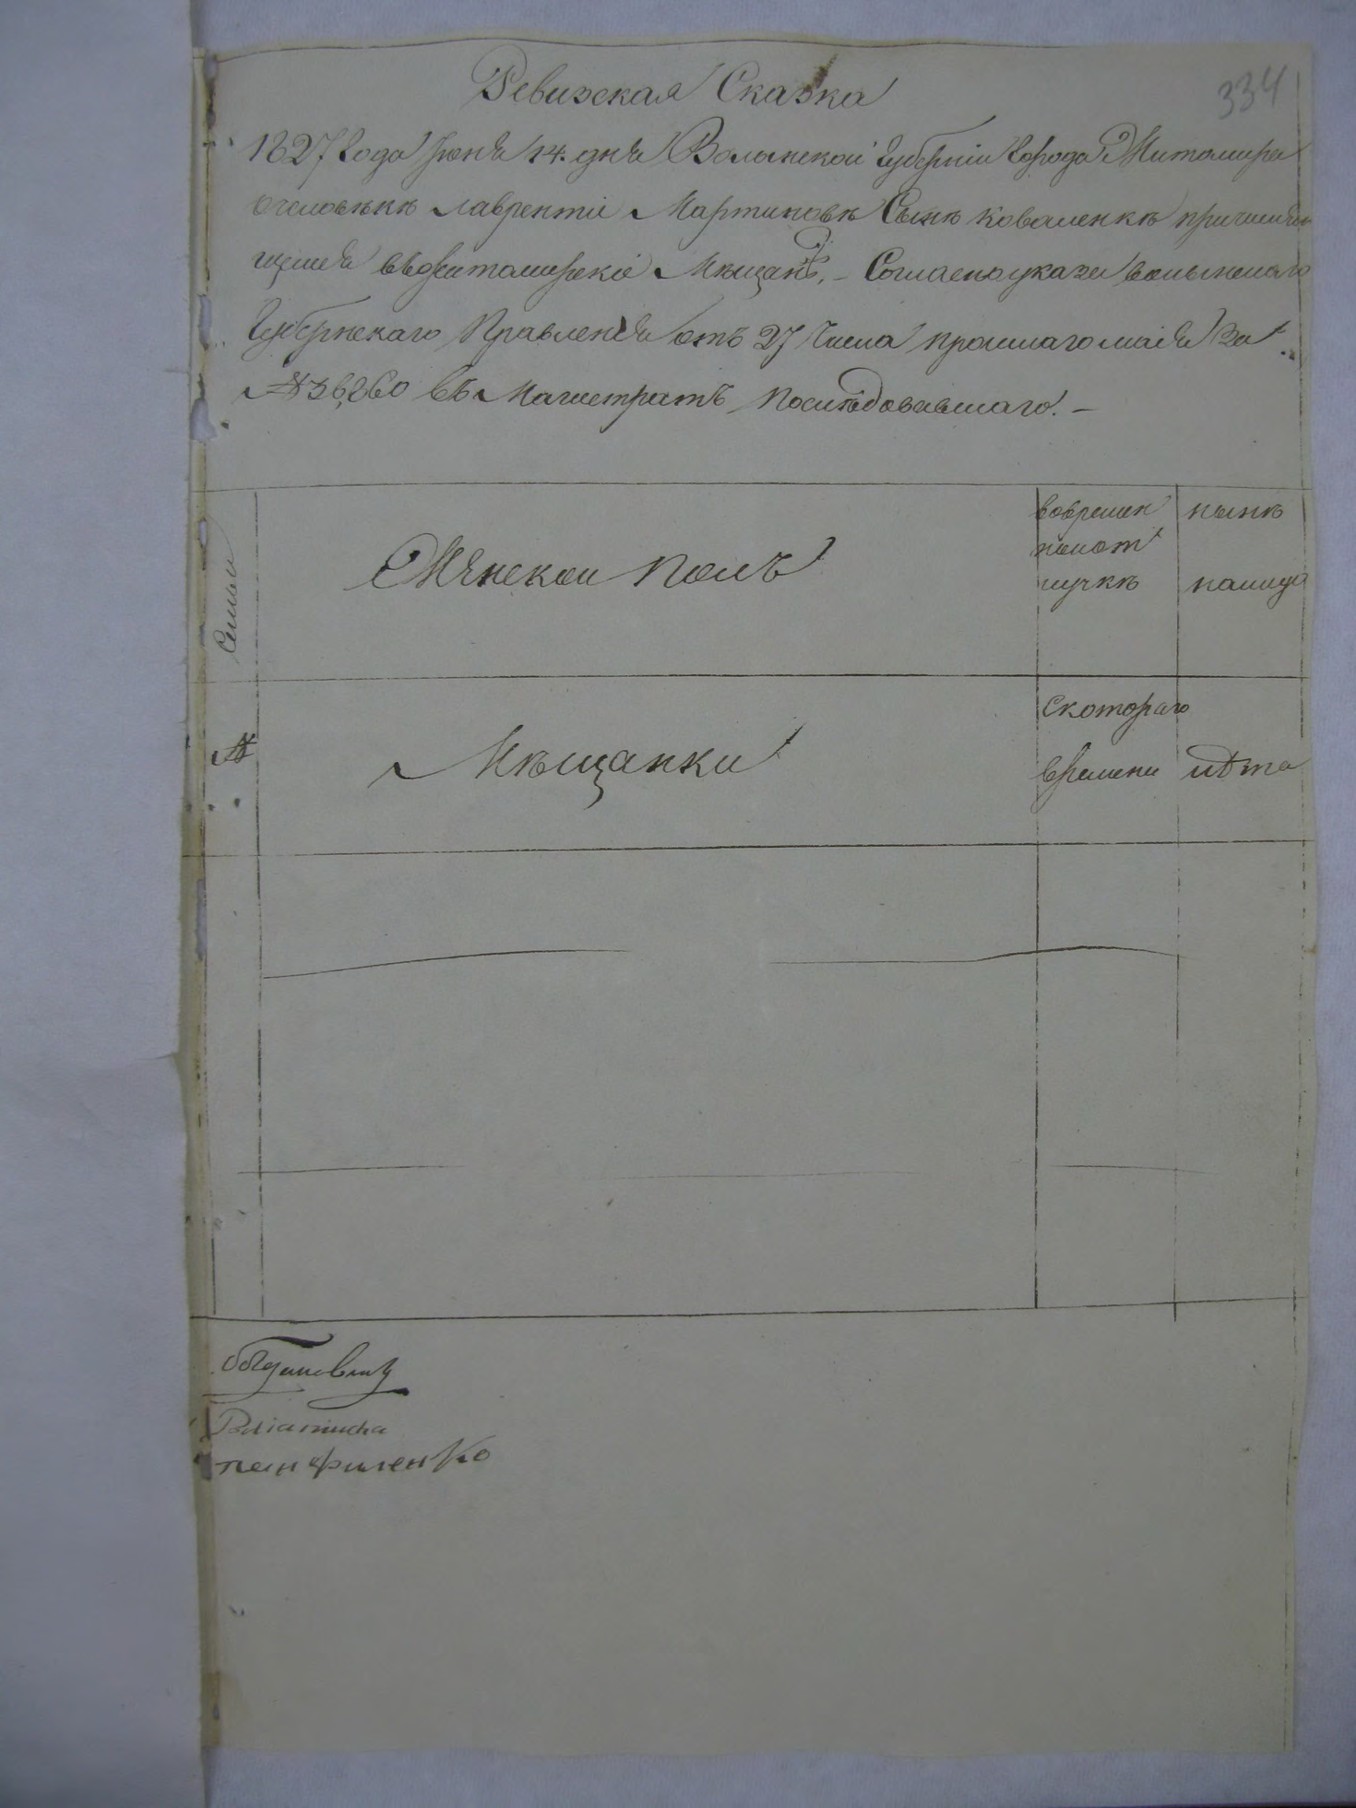 Ревизская Сказка
334
1827 Года Июня 14. дня Волынской Губернии Города Житомира
очеловѣкѣ Лаврентіи Мартиновѣ Сынѣ Коваленкѣ причислив
щемся вЖитомирскіе Мѣщане. – Согласно указа Волынскаго
Губернскаго Правленія отъ 27 Числа прошлаго маія За
№ 36,260 въ Магистратъ Последовавшаго. –
Семьи
Женскои Полъ
вовремен
нои от
лучкѣ
нынѣ
налицо
№
Мѣщанки
Скотораго
времени
лѣта
Панфиленко